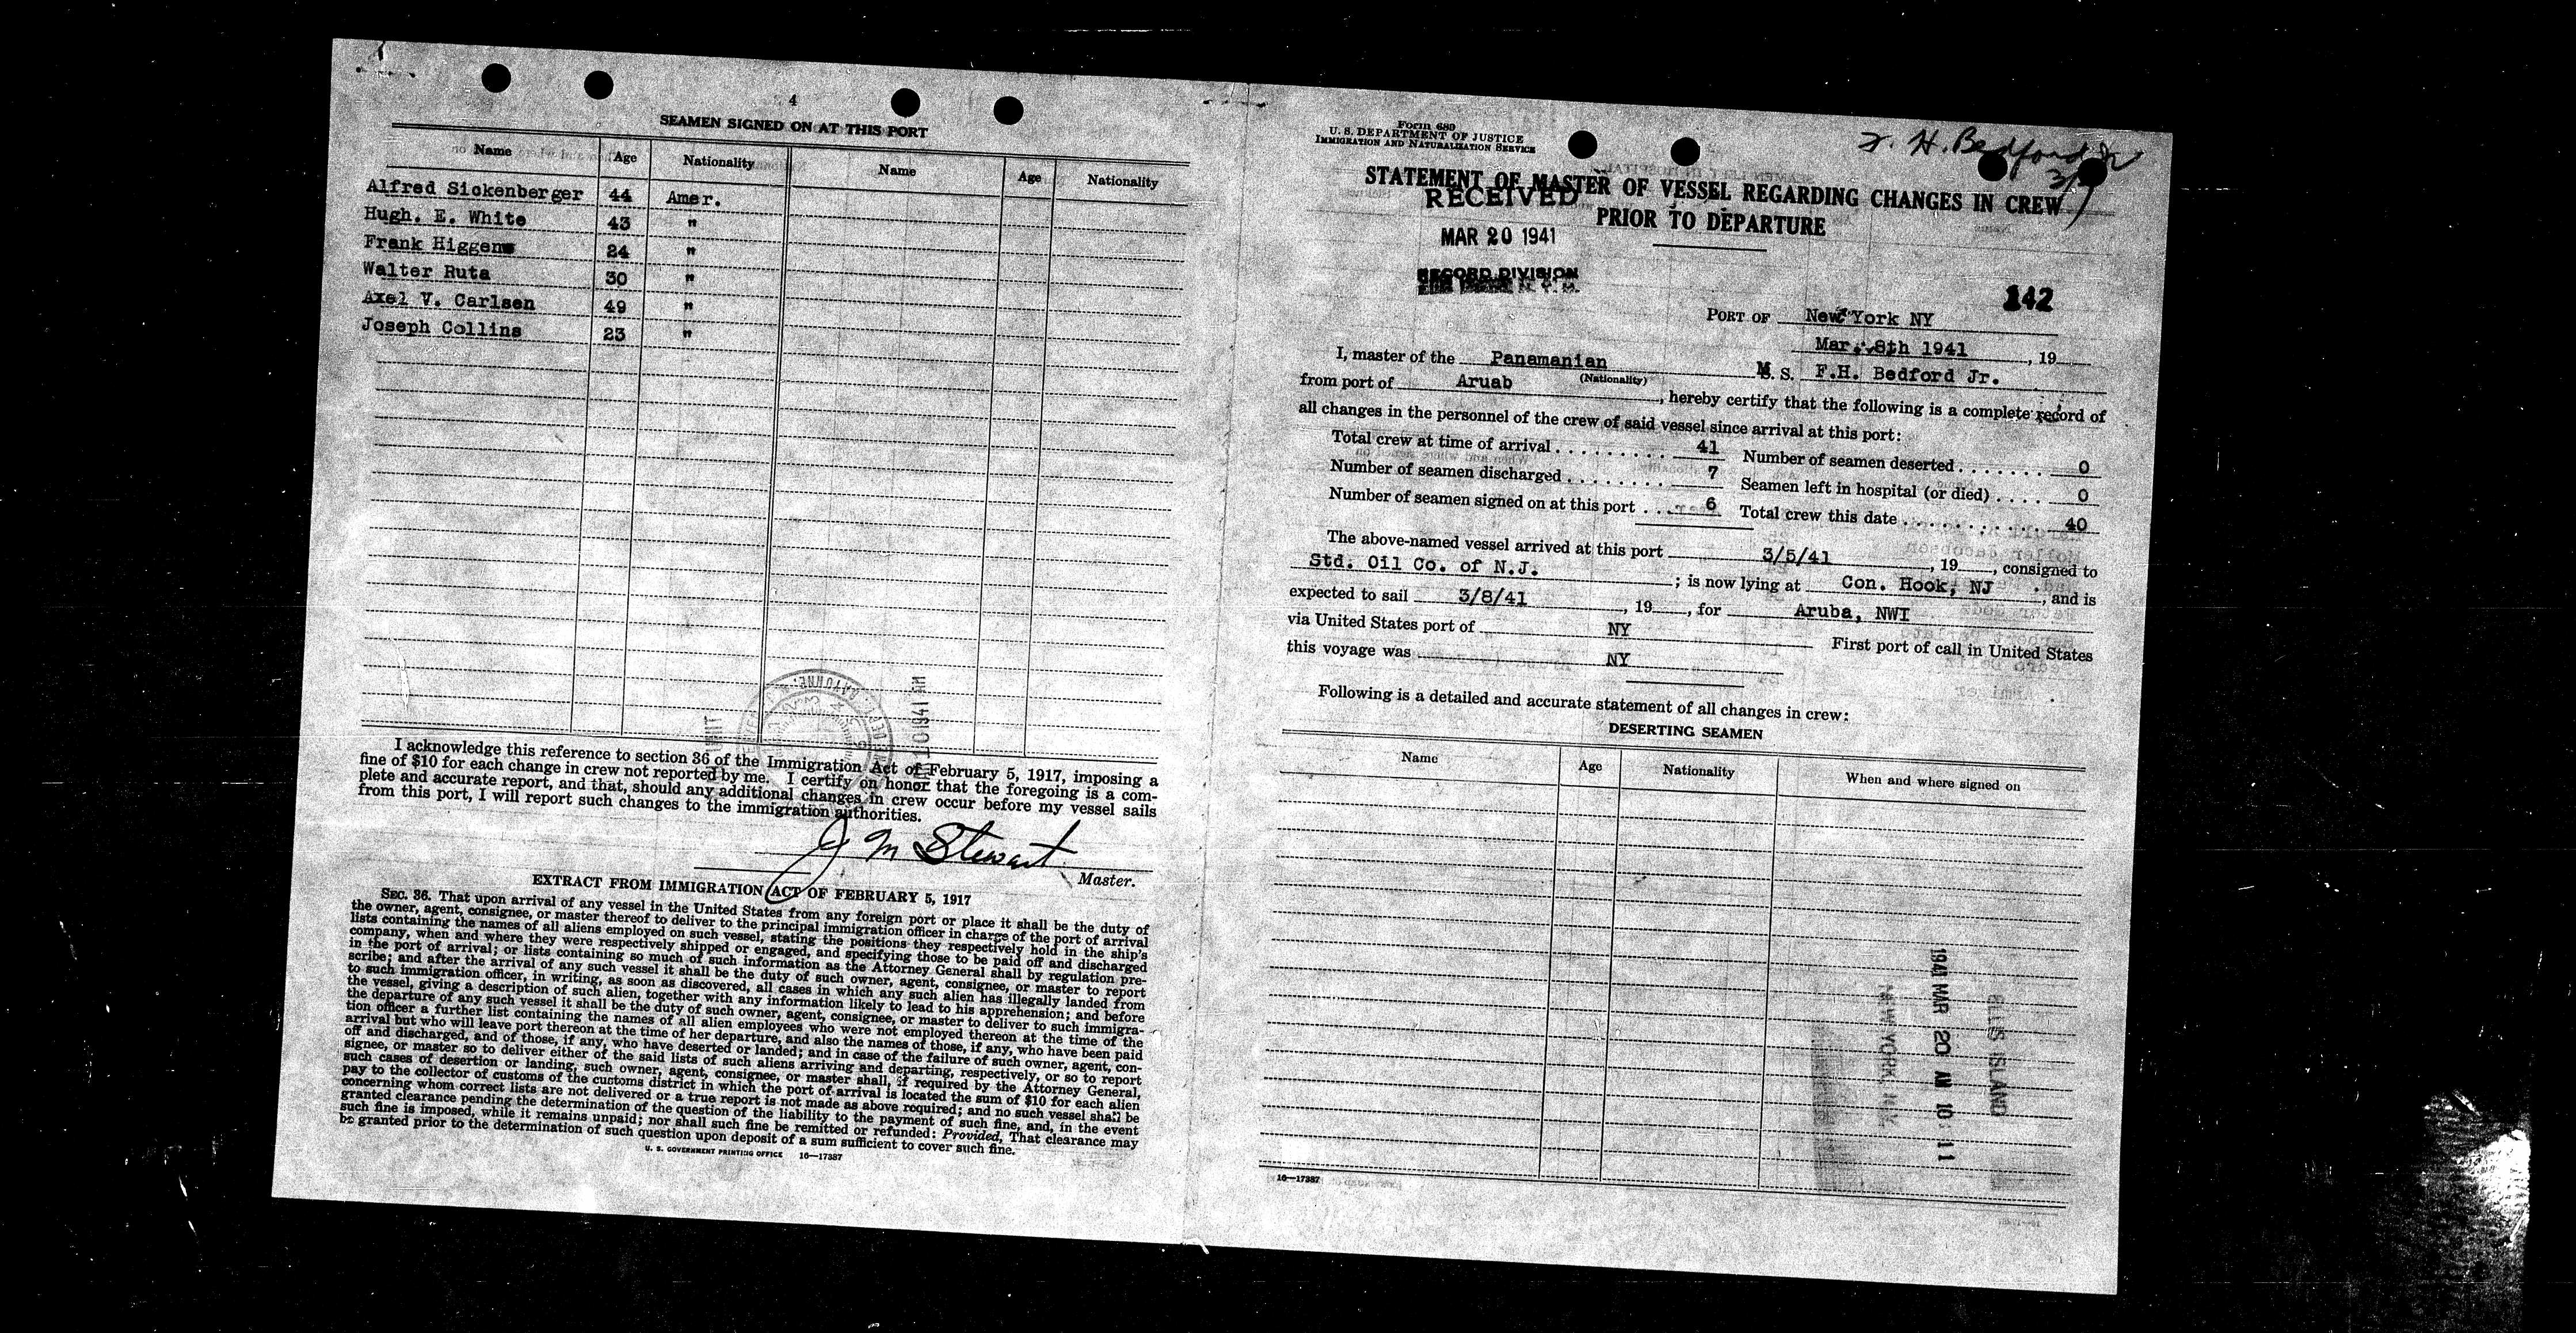 4
SEAMEN SIGNED ON AT THIS PORT
Name Age Nationality Name Age Nationality
Alfred Sickenberger 44 Amer.
Hugh. E. White 43 "
Frank Higgens 24 "
Walter Ruta 30 "
Axel V. Carlsen 49 "
Joseph Collins 23 "
I acknowledge this reference to section 36 of the Immigration Act of February 5, 1917, imposing a
fine of $10 for each change in crew not reported by me. I certify on honor that the foregoing is a com-
plete and accurate report, and that, should any additional changes in crew occur before my vessel sails
from this port, I will report such changes to the immigration authorities.
J M Stewart
Master.
EXTRACT FROM IMMIGRATION ACT OF FEBRUARY 5, 1917
SEC. 36. That upon arrival of any vessel in the United States from any foreign port or place it shall be the duty of
the owner, agent, consignee, or master thereof to deliver to the principal immigration officer in charge of the port of arrival
lists containing the names of all aliens employed on such vessel, stating the positions they respectively hold in the ship's
company, when and where they were respectively shipped or engaged, and specifying those to be paid off and discharged
in the port of arrival; or lists containing so much of such information as the Attorney General shall by regulation pre-
scribe; and after the arrival of any such vessel it shall be the duty of such owner, agent, consignee, or master to report
to such immigration officer, in writing, as soon as discovered, all cases in which any such alien has illegally landed from
the vessel, giving a description of such alien, together with any information likely to lead to his apprehension; and before
the departure of any such vessel it shall be the duty of such owner, agent, consignee, or master to deliver to such immigra-
tion officer a further list containing the names of all alien employees who were not employed thereon at the time of the
arrival but who will leave port thereon at the time of her departure, and also the names of those, if any, who have been paid
off and discharged, and of those, if any, who have deserted or landed; and in case of the failure of such owner, agent, con-
signee, or master so to deliver either of the said lists of such aliens arriving and departing, respectively, or so to report
such cases of desertion or landing, such owner, agent, consignee, or master shall, if required by the Attorney General,
pay to the collector of customs of the customs district in which the port of arrival is located the sum of $10 for each alien
concerning whom correct lists are not delivered or a true report is not made as above required; and no such vessel shall be
granted clearance pending the determination of the question of the liability to the payment of such fine, and, in the event
such fine is imposed, while it remains unpaid; nor shall such fine be remitted or refunded: Provided, That clearance may
be granted prior to the determination of such question upon deposit of a sum sufficient to cover such fine.
U. S. GOVERNMENT PRINTING OFFICE 16—17387
Form 680
U. S. DEPARTMENT OF JUSTICE
IMMIGRATION AND NATURALIZATION SERVICE
F. H. Bedford Jr
3/7
STATEMENT OF MASTER OF VESSEL REGARDING CHANGES IN CREW
PRIOR TO DEPARTURE
RECEIVED
MAR 20 1941
RECORD DIVISION
142
PORT OF New York NY
Mar. 8th 1941, 19
I, master of the Panamanian M. S. F.H. Bedford Jr.
(Nationality)
from port of Aruab, hereby certify that the following is a complete record of
all changes in the personnel of the crew of said vessel since arrival at this port:
Total crew at time of arrival 41 Number of seamen deserted 0
Number of seamen discharged 7 Seamen left in hospital (or died) 0
Number of seamen signed on at this port 6 Total crew this date 40
The above-named vessel arrived at this port 3/5/41, 19, consigned to
Std. Oil Co. of N.J.; is now lying at Con. Hook, NJ, and is
expected to sail 3/8/41, 19, for Aruba, NWI
via United States port of NY First port of call in United States
this voyage was NY
Following is a detailed and accurate statement of all changes in crew:
DESERTING SEAMEN
Name Age Nationality When and where signed on
ELLIS ISLAND
1941 MAR 20 AM 10 11
NEW YORK, N.Y.
16—17387